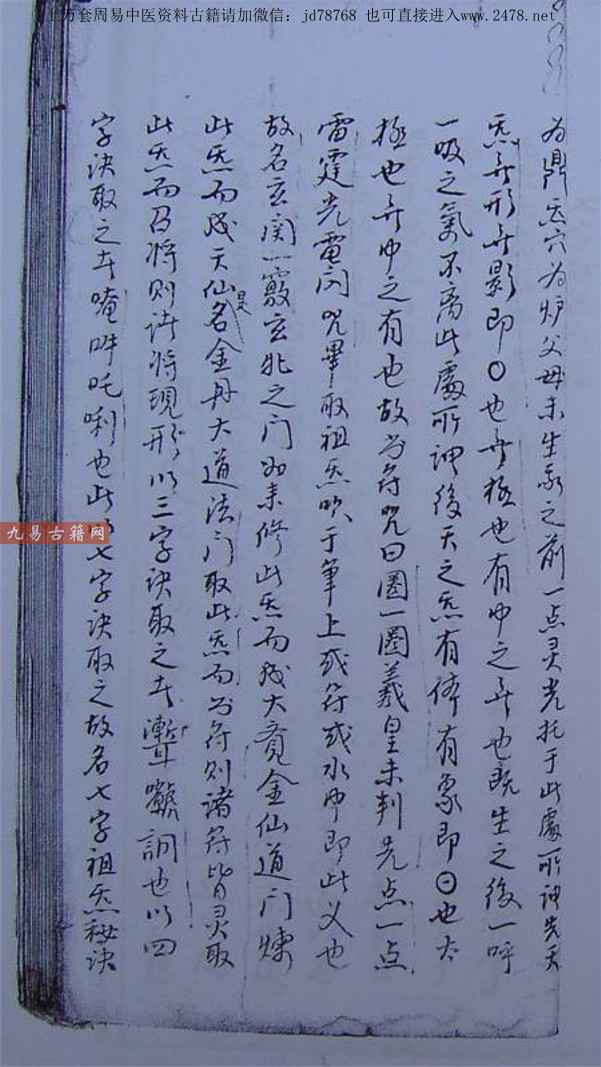 上万套周易中医资料古籍请加微信：jd78768 也可直接进入www.2478.net
为鼎炁穴为炉父母未生我之前一点灵光托于此處所谓先天
炁无形无影即〇也无极也有中之无也既生之後一呼
一吸之氣不离此處所谓後天之炁有体有象即⊙也太
極也无中之有也故书符咒曰圈一圈羲皇未判先点一点
雷霆光電闪咒畢取祖炁吹于筆上或符或水中即此义也
故名玄関一竅玄牝之门如来修此炁而成大覺金仙道门煉
此炁而成天仙是名金丹大道法门取此炁而书符则诸符皆灵取
此炁而召将则诸将現形以三字诀取之者 也以四
字诀取之者唵吽吒唎也此以七字诀取之故名七字祖炁秘诀
九易古籍网